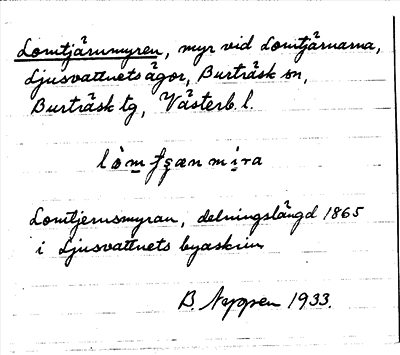 Lomtjärnmyren, myr vid Lomtjärnarna,
Ljusvattnets ägor, Burträsk sn,
Burträsk tg, Västerb. l.
Lomtjernsmyran, delningslängd 1865
i Ljusvattnets byaskrin
B. 1933.